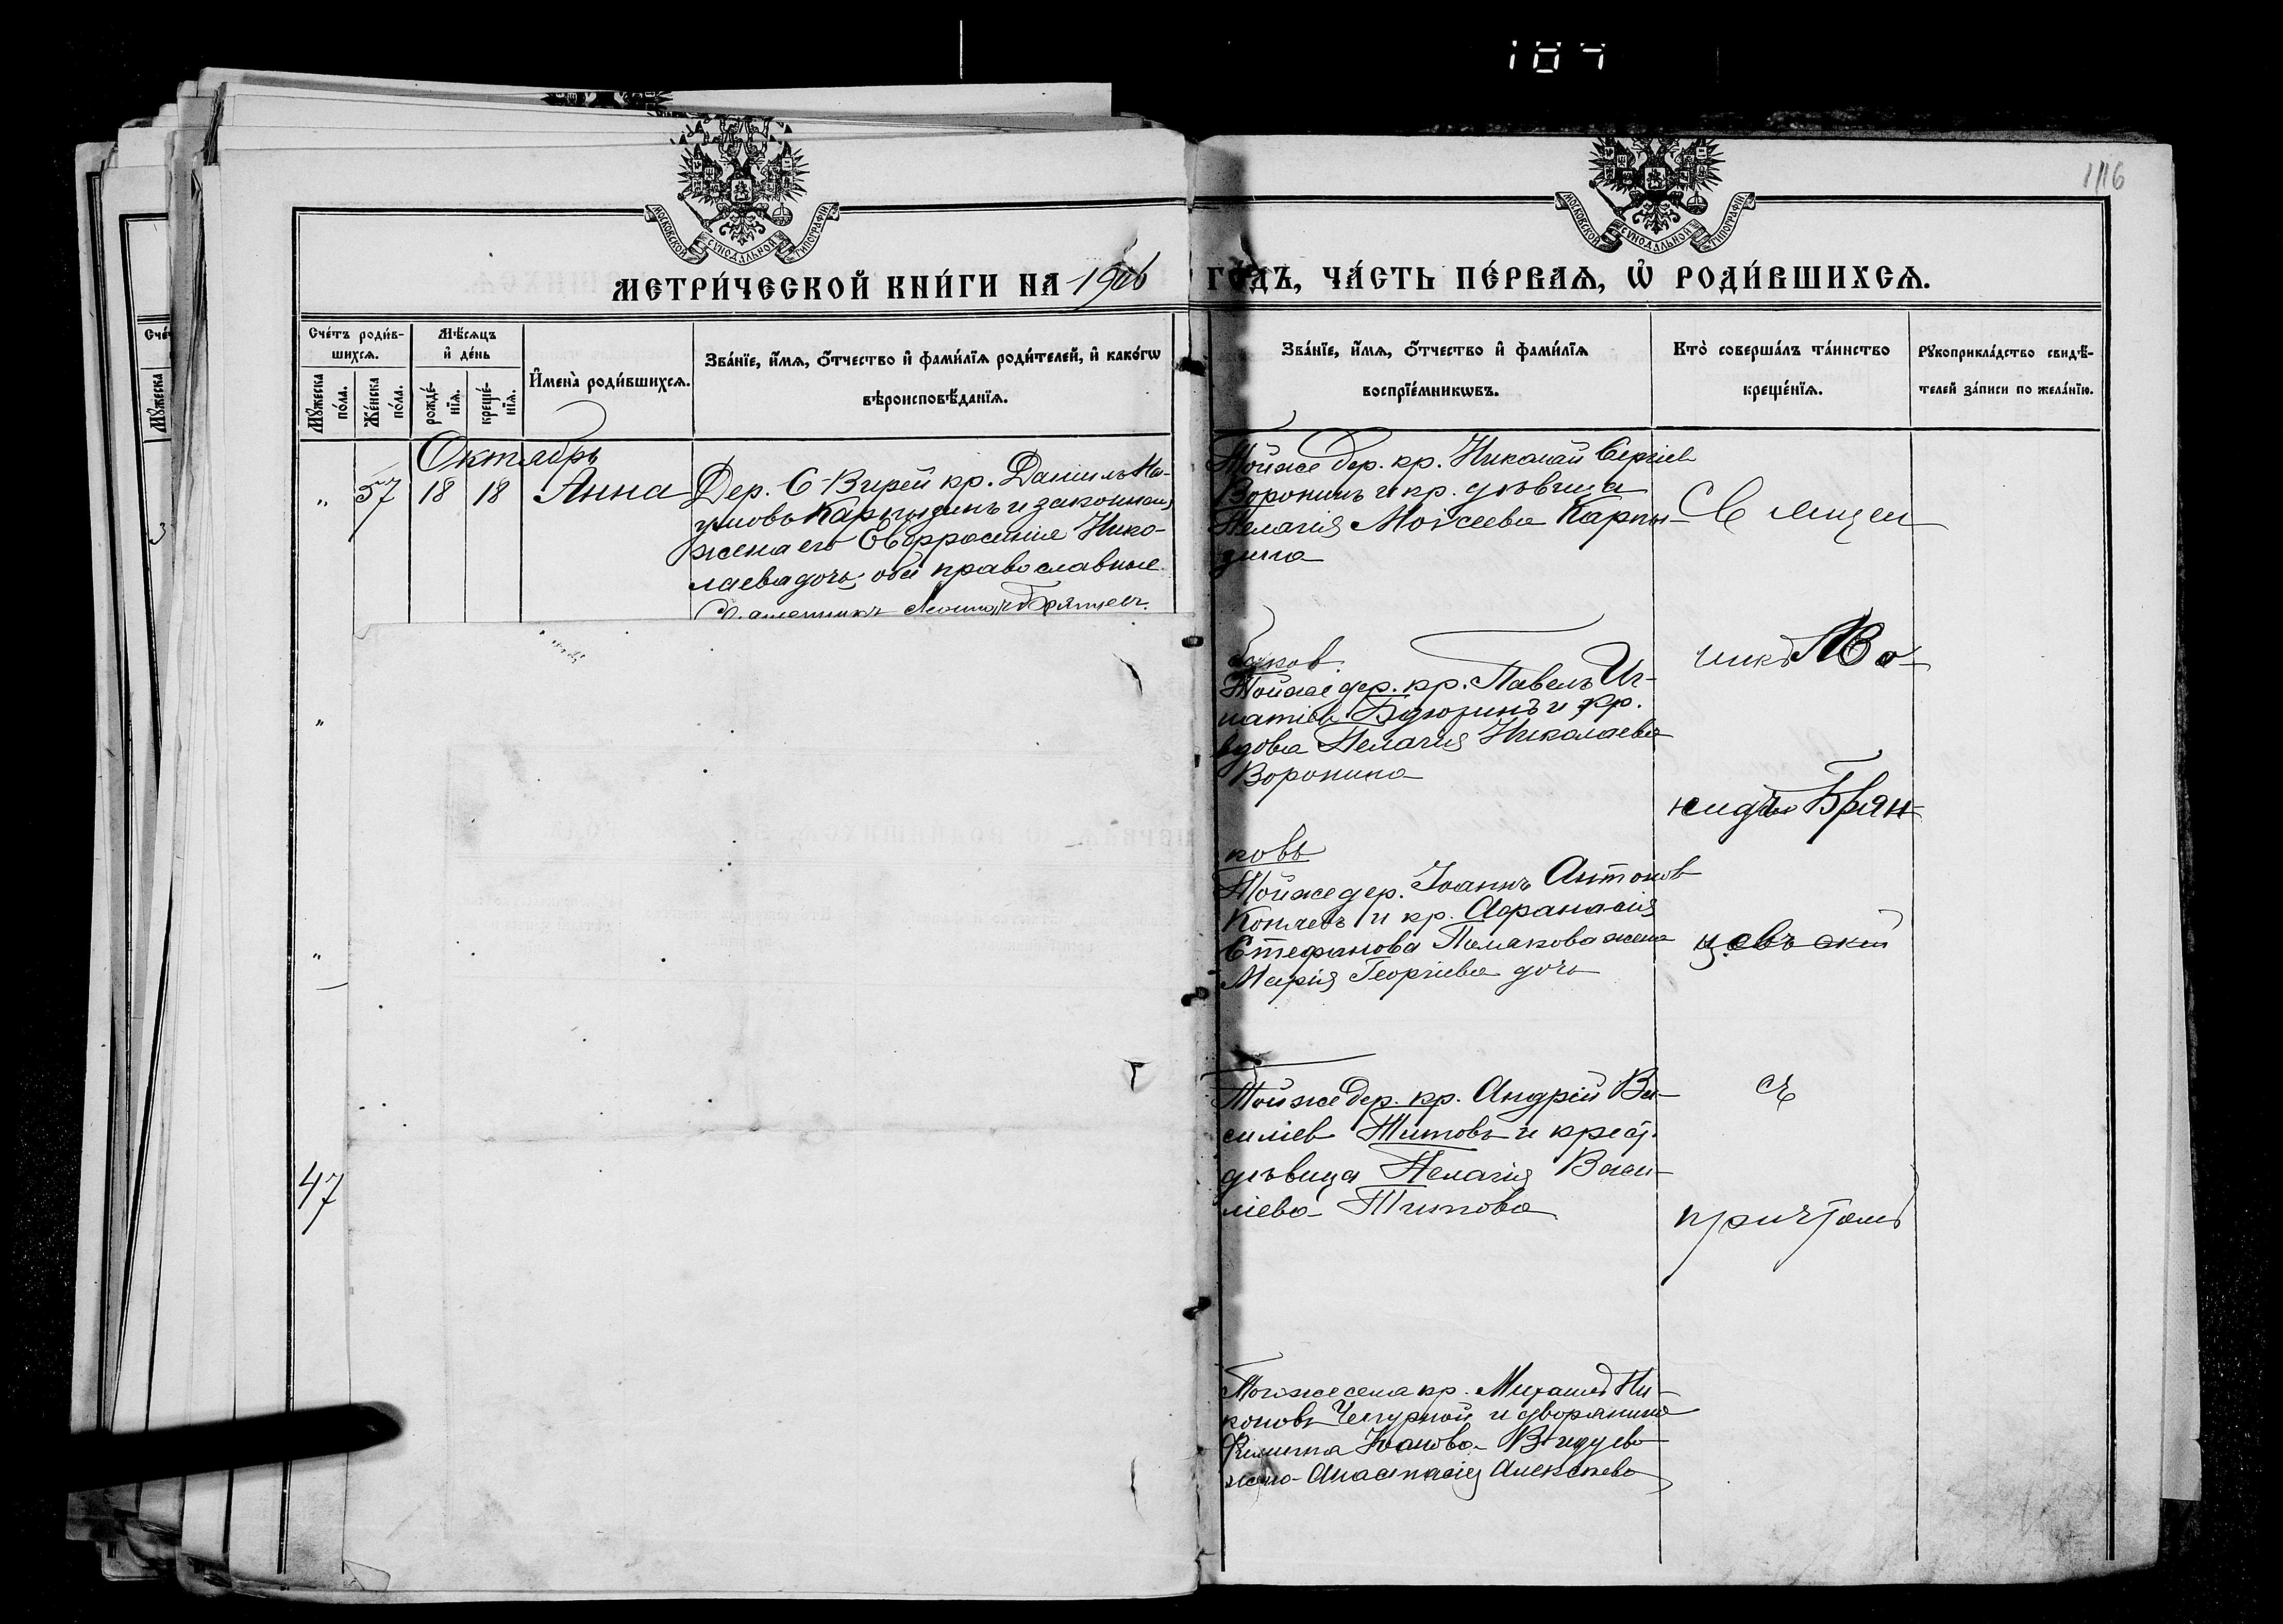 107
1116
МОСКОВСКОЙ СѴНОДАЛЬНОЙ ТИПОГРАФІИ
МОСКОВСКОЙ СѴНОДАЛЬНОЙ ТИПОГРАФІИ
МЕТРИ́ЧЕСКОЙ КНИ́ГИ НА 1906 ГО́ДЪ, ЧА́СТЬ ПЕ́РВАѦ, Ѡ҆ РОДИ́ВШИХСѦ.
Сче́тъ роди́в-
шихсѧ.
Мꙋ́жеска по́ла.
Же́нска по́ла.
Мѣ́сѧцъ
и҆ де́нь
рожде́-
нїѧ.
креще́-
нїѧ.
И҆мена̀ роди́вшихсѧ.
Зва́нїе, и҆́мѧ, ѻ҆́тчество и҆ фами́лїѧ роди́телей, и҆ како́гѡ
вѣроисповѣ́данїѧ.
Зва́нїе, и҆́мѧ, ѻ҆́тчество и҆ фами́лїѧ
воспрїе́мникѡвъ.
Кто̀ соверша́лъ та́инство
креще́нїѧ.
Рꙋкоприкла́дство свидѣ́-
телей за́писи по жела́нїю.
Октябрь
" 57 18 18 Анна
Дер. С-Вирей кр. Даніилъ На-
умовъ Карпызинъ и законная
жена его Евфросинія Нико-
лаева дочь; оба православные
Тойже дер. кр. Николай Сергіев
Воронинъ и кр. дѣвица
Пелагія Моисеева Карпы-
зина
Священ
баков.
Тойже дер. кр. Павелъ Иг-
натіев и кр.
вдова Пелагия Николаева
Воронина
никъ
Брян-
"
ковъ
Тойже дер. Іоаннъ Антонов
и кр. Афанасия
Стефанова Полякова жена
Марія Георгіева дочь
цевъ
"
Тойже дер. кр. Андрей Ва-
силіев Титовъ и крест.
дѣвица Пелагія Васи-
ліева Титова
съ
47
причтомъ
Тогоже села кр. Михаилъ Ни-
коновъ и дворянина
Иванова
жена Анастасія Алексѣева